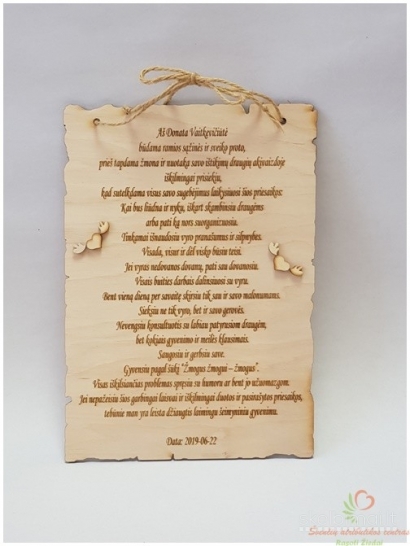 Aš Donata Vaitkevičiūtė
būdama ramios sąžinės ir sveiko proto,
prieš tapdama žmona ir nuotaka savo ištikimų draugių akivaizdoje
iškilmingai prisiekiu,
kad sutelkdama visus savo sugebėjimus laikysiuosi šios priesaikos:
Kai bus liūdna ir nyku, iškart skambinsiu draugėms
arba pati ką nors suorganizuosiu.
Tinkamai išnaudosiu vyro pranašumus ir silpnybes.
Visada, visur ir dėl visko būsiu teisi.
Jei vyras nedovanos dovanų, pati sau dovanosiu.
Visais buities darbais dalinsiuosi su vyru.
Bent vieną dieną per savaitę skirsiu tik sau ir savo malonumams.
Sieksiu ne tik vyro, bet ir savo gerovės.
Nevengsiu konsultuotis su labiau patyrusiom draugėm,
bet kokiais gyvenimo ir meilės klausimais.
Saugosiu ir gerbsiu save.
Gyvensiu pagal šūkį "Žmogus žmogui – žmogus"
Visas iškilsiančias problemas spręsiu su humoru ar bent jo užuomazgom.
Jei nepažeisiu šios garbingai laisvai ir iškilmingai duotos ir pasirašytos priesaikos,
tebūnie man yra leista džiaugtis laimingu šeimyniniu gyvenimu.
Data: 2019-06-22